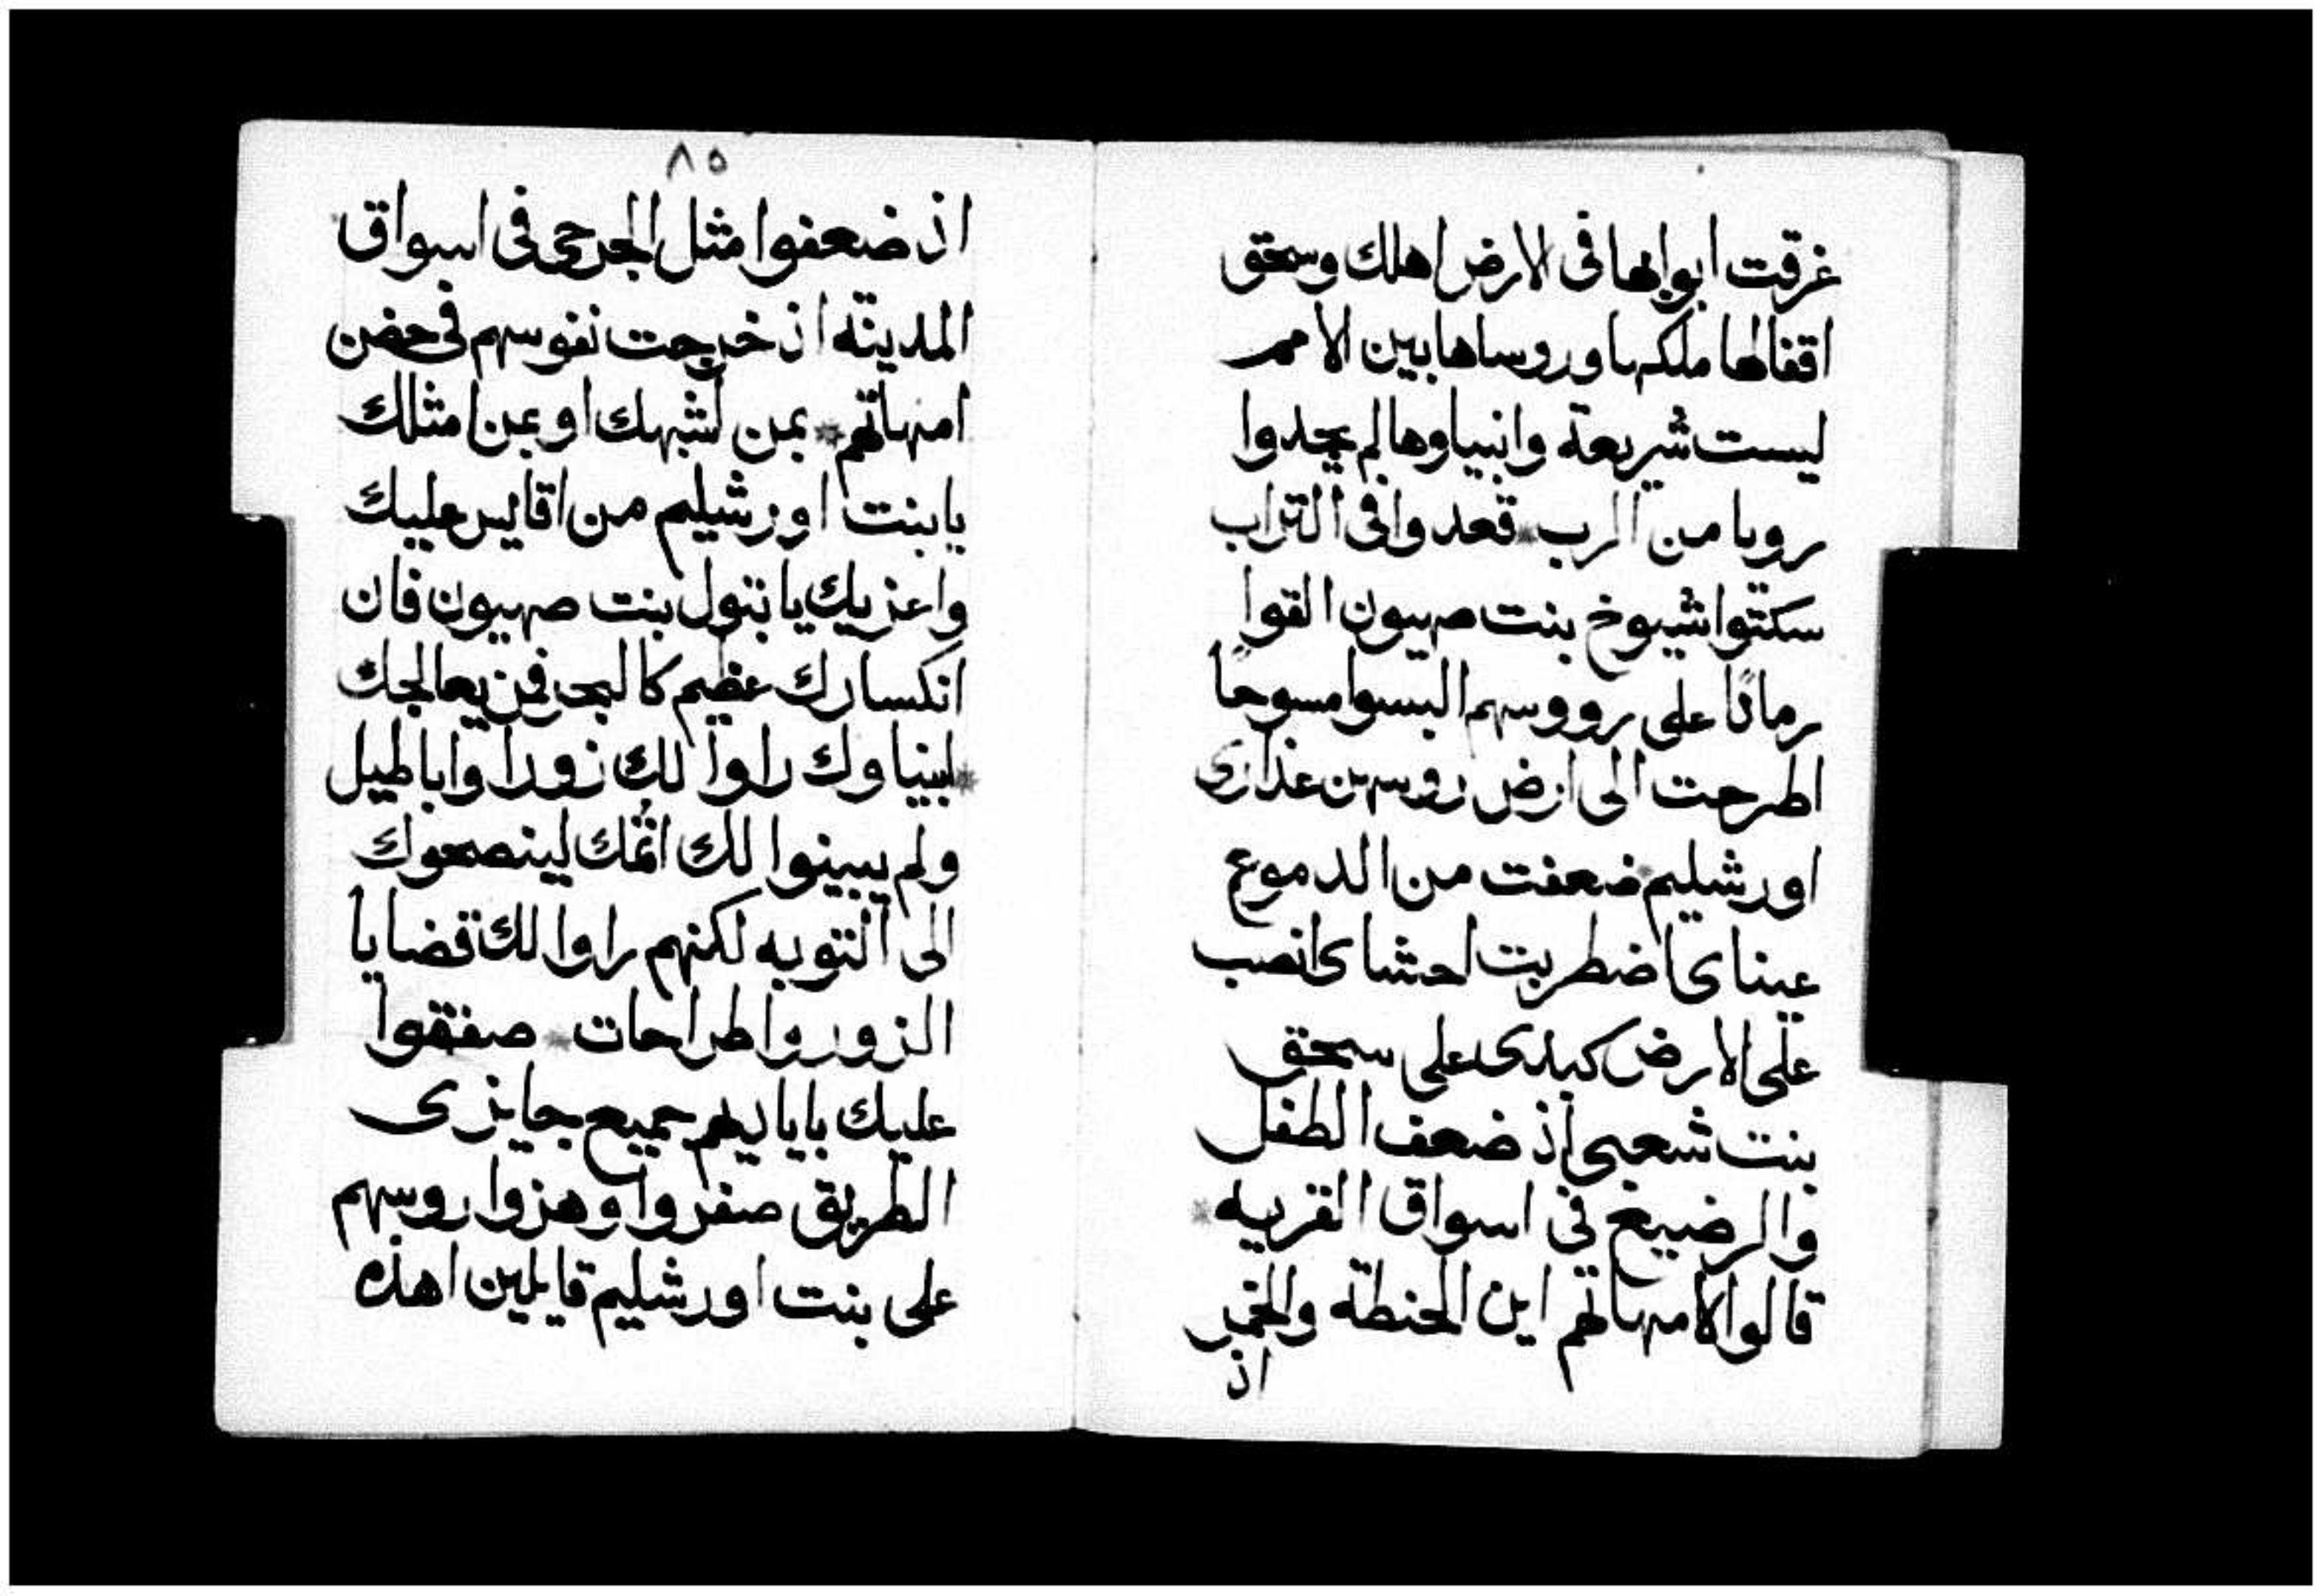 غرقت ابوابها فى الارض اهلك وسحق
اقفالها ملكها وروساها بين الامم
ليست شريعة وانبياوها لم يجدوا
رويا من الرب * قعدوا فى التراب
سكتوا شيوخ بنت صهيون القوا
رمادًا على رووسهم البسوا مسوحًا
اطرحت الى ارض روسهن عذارى
اورشليم * ضعفت من الدموع
عيناى اضطربت احشاى انصب
على الارض كبدى على سحق
بنت شعبى اذ ضعف الطفل
والرضيع فى اسواق القريه *
قالوا لامهاتهم اين الحنطة والخمر
اذ
٨٥
اذ ضعفوا مثل الجرحى فى اسواق
المدينة اذ خرجت نفوسهم فى حضن
امهاتهم * بمن اشبهك او بمن امثلك
يا بنت اورشليم من اقايس عليك
واعزيك يا بتول بنت صهيون فان
انكسارك عظيم كالبحر فمن يعالجك
* انبياوك راوا لك زورا واباطيل
ولم يبينوا لك اثمك لينصحوك
الى التوبه لكنهم راوا لك قضايا
الزور واطراحات * صفقوا
عليك باياديهم جميع جايزى
الطريق صفروا وهزوا روسهم
على بنت اورشليم قايلين اهذه